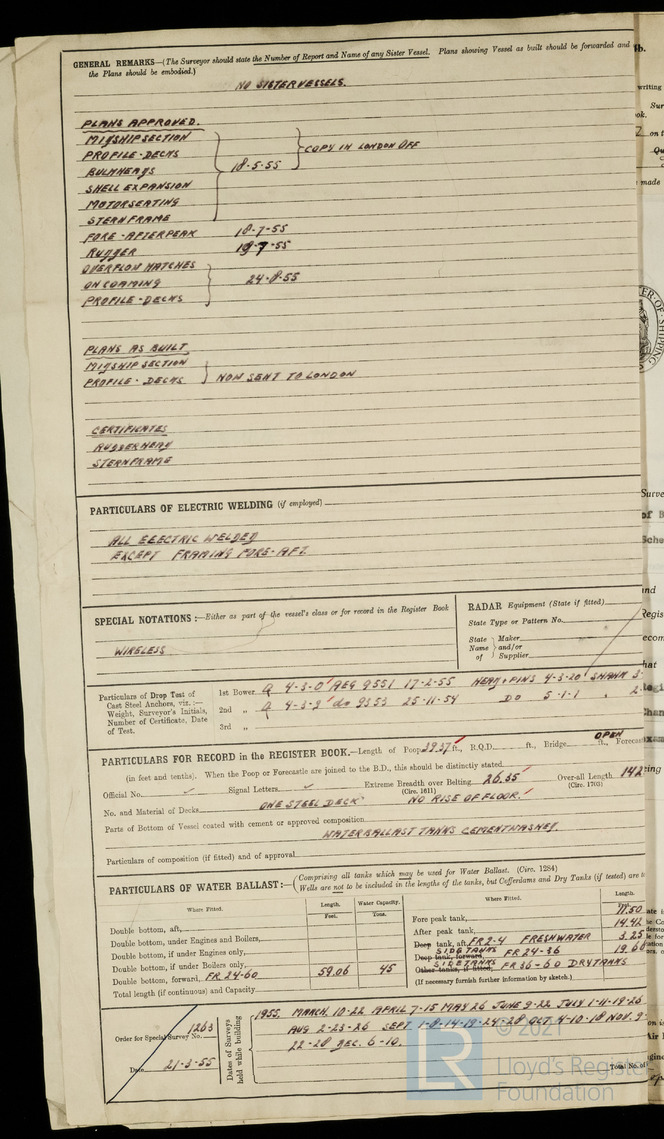 GENERAL REMARKS—(The Surveyor should state the Number of Report and Name of any Sister Vessel. Plans showing Vessel as built should be forwarded and
the Plans should be embodied.)
NO SISTERVESSELS.
PLANS APPROVED.
MIDSHIPSECTION
PROFILE-DECKS
COPY IN LONDON OFF
BULKHEADS
18-5-55
SHELL EXPANSION
MOTORSEATING
STERNFRAME
FORE-AFTERPEAK 18-7-55
RUDDER 19-7-55
OVERFLOW HATCHES
ON COAMING 24-8-55
PROFILE-DECKS
PLANS AS BUILT
MIDSHIPSECTION
PROFILE-DECKS } NOW SENT TO LONDON
CERTIFICATES
RUDDERHEAD
STERNFRAME
PARTICULARS OF ELECTRIC WELDING (if employed)
ALL ELECTRIC WELDED
EXCEPT FRAMING FORE-AFT
SPECIAL NOTATIONS:—Either as part of the vessel's class or for record in the Register Book
WIRELESS
RADAR Equipment (State if fitted)
State Type or Pattern No.
State Name of { Maker and/or Supplier
Particulars of Drop Test of
Cast Steel Anchors, viz.:—
Weight, Surveyor's Initials,
Number of Certificate, Date
of Test.
1st Bower 4-3-0 AEG 9551 17-2-55 HEAD+PINS 4-3-20 SHANK 3-
2nd „ 4-3-9 do 9553 25-11-54 DO 5-1-1 „ 2-
3rd „
PARTICULARS FOR RECORD in the REGISTER BOOK.—Length of Poop 29.37 ft., R.Q.D. ft., Bridge ft., OPEN Forecast
(in feet and tenths). When the Poop or Forecastle are joined to the B.D., this should be distinctly stated
Official No. Signal Letters Extreme Breadth over Belting (Circ. 1611) 26.55 Over-all Length (Circ. 1703) 142
No. and Material of Decks ONE STEEL DECK NO RISE OF FLOOR.
Parts of Bottom of Vessel coated with cement or approved composition
WATERBALLAST TANKS CEMENTWASHED.
Particulars of composition (if fitted) and of approval
PARTICULARS OF WATER BALLAST:—(Comprising all tanks which may be used for Water Ballast. (Circ. 1284)
Wells are not to be included in the lengths of the tanks, but Cofferdams and Dry Tanks (if tested) are to
Where Fitted. Length. Feet. Water Capacity. Tons. Where Fitted. Length.
Double bottom, aft,
Double bottom, under Engines and Boilers,
Double bottom, if under Engines only,
Double bottom, if under Boilers only,
Double bottom, forward, FR 24-60 59.06 45
Total length (if continuous) and Capacity
Fore peak tank, 11.50
After peak tank, 14.42
Deep tank, aft, FR 2-4 FRESHWATER 3.25
Deep tank, forward, SIDETANKS FR 24-36
Other tanks, if fitted, SIDETANKS FR 36-60 DRYTANKS
(If necessary furnish further information by sketch.)
Order for Special Survey No. 1263
Date 21-3-55
Dates of Surveys held while building
1955. MARCH. 10-22 APRIL 7-15 MAY 26 JUNE 9-22 JULY 1-4-19-26
AUG 2-23-26 SEPT. 1-8-14-19-24-28 OCT. 4-10-18 NOV. 9-
22-28 DEC. 6-10.
© 2021
LR
Lloyd's Register
Foundation
Total No. of